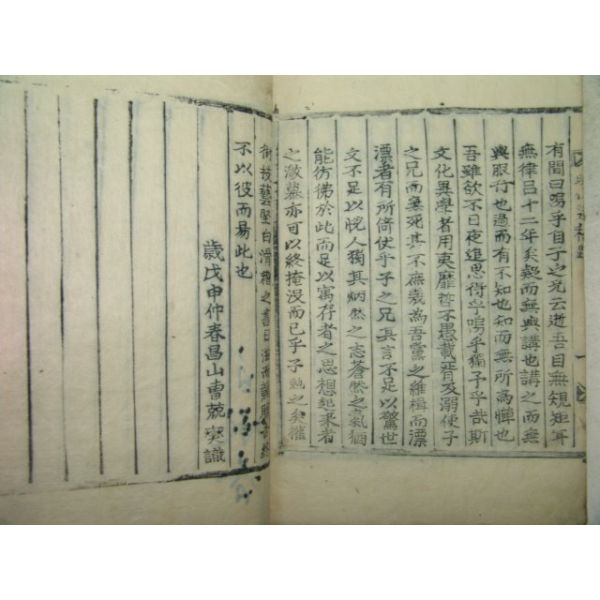 有間曰嗚乎自子之兄云逝吾目無規矩耳
無律呂十二年矣疑而無與講也講之而無
與服行也過而有不知也知而無所爲憚也
吾雖欲不日夜追思得乎嗚乎獨予乎哉斯
文化異學者用夷靡哲不愚載胥及溺使子
之兄而無死其不庶幾爲吾黨之維楫而漂
漂者有所倚仗乎子之兄其言不足以驚世
文不足以恍人獨其炳然之志蒼然之氣猶
能彷彿於此而足以寓存者之思想起來者
之激慕亦可以終掩沒而已乎子勉之矣雖
術技藝堅白滑稽之書日
不以彼而易此也
歲戊申仲春昌山曺兢燮識